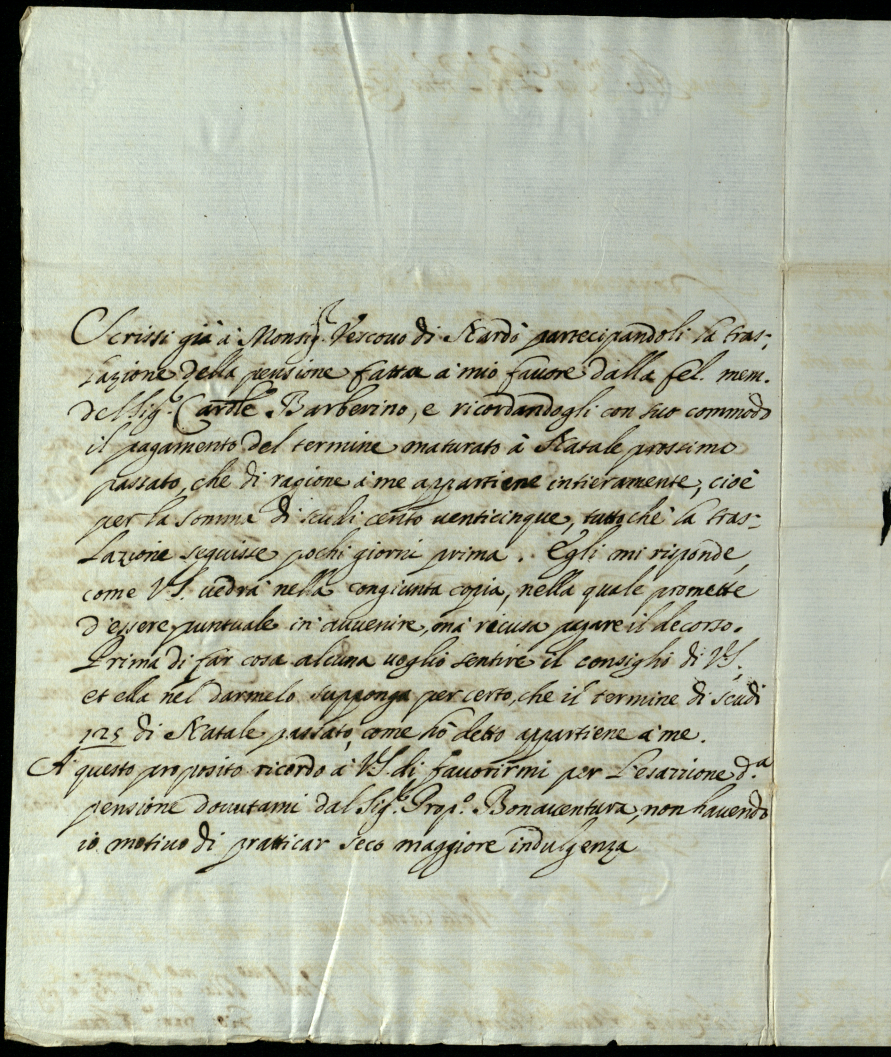 Scrissi già à Monsig.r Vescovo di Nardò partecipandoli la tras-
lazione della pensione fatta à mio favore dalla fel. mem.
del Sig.r Card.le Barberino, e ricordandogli con suo commodo
il pagamento del termine maturato à Natale prossimo
passato, che di ragione à me appartiene intieramente, cioè
per la somma di scudi cento venticinque, tutto chè la tras-
lazione seguisse pochi giorni prima. Egli mi risponde,
come V.S. vedrà nella congiunta copia, nella quale promette
d'essere puntuale in avvenire, mà ricusa pagare il decorso.
Prima di far cosa alcuna voglio sentire il consiglio di V.S.,
et ella nel darmelo supponga per certo, che il termine di scudi
125 di Natale passato, come hò detto appartiene à me.
A questo proposito ricordo à V.S. di favorirmi per l'esazzione d.a
pensione dovutami dal Sig.r Prop.o Bonaventura, non havendo
io motivo di pratticar seco maggiore indulgenza